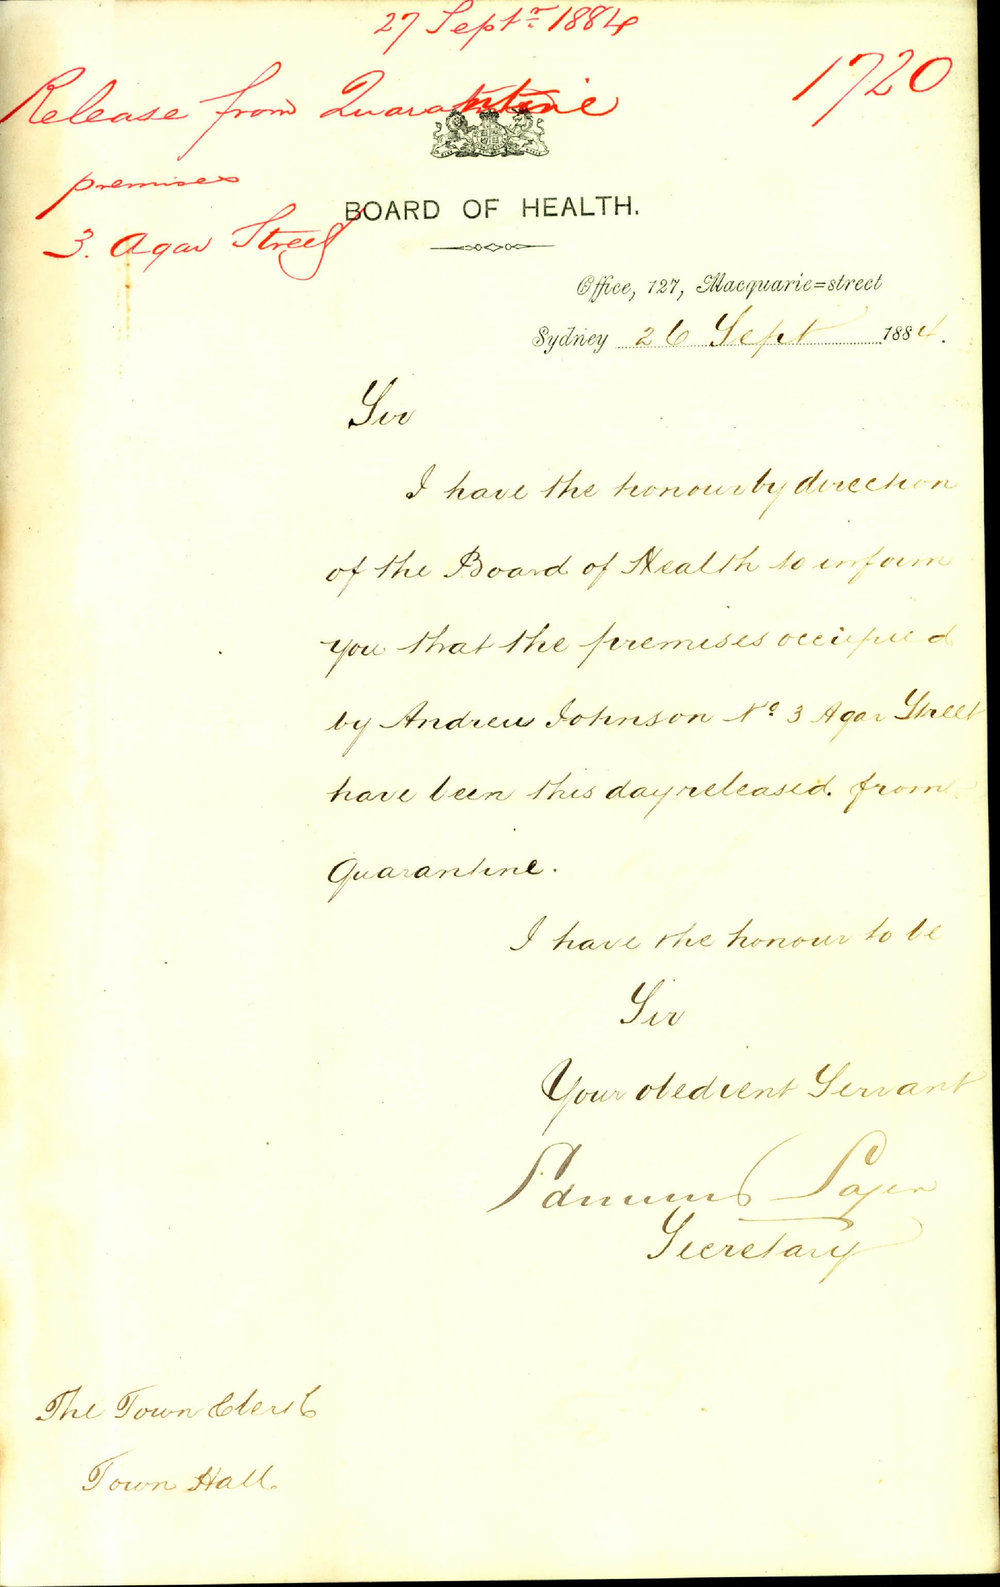 27 Septr 1884
1720
Release from Quarantine
premises
3. Agar Street
BOARD OF HEALTH.
Office, 127, Macquarie=street
Sydney 26 Sept 1884.
Sir
I have the honour by direction
of the Board of Health to inform
you that the premises occupied
by Andrew Johnson No 3 Agar Street
have been this day released. from
Quarantine.
I have the honour to be
Sir
Your obedient Servant
Edmund Sager
Secretary
The Town Clerk
Town Hall